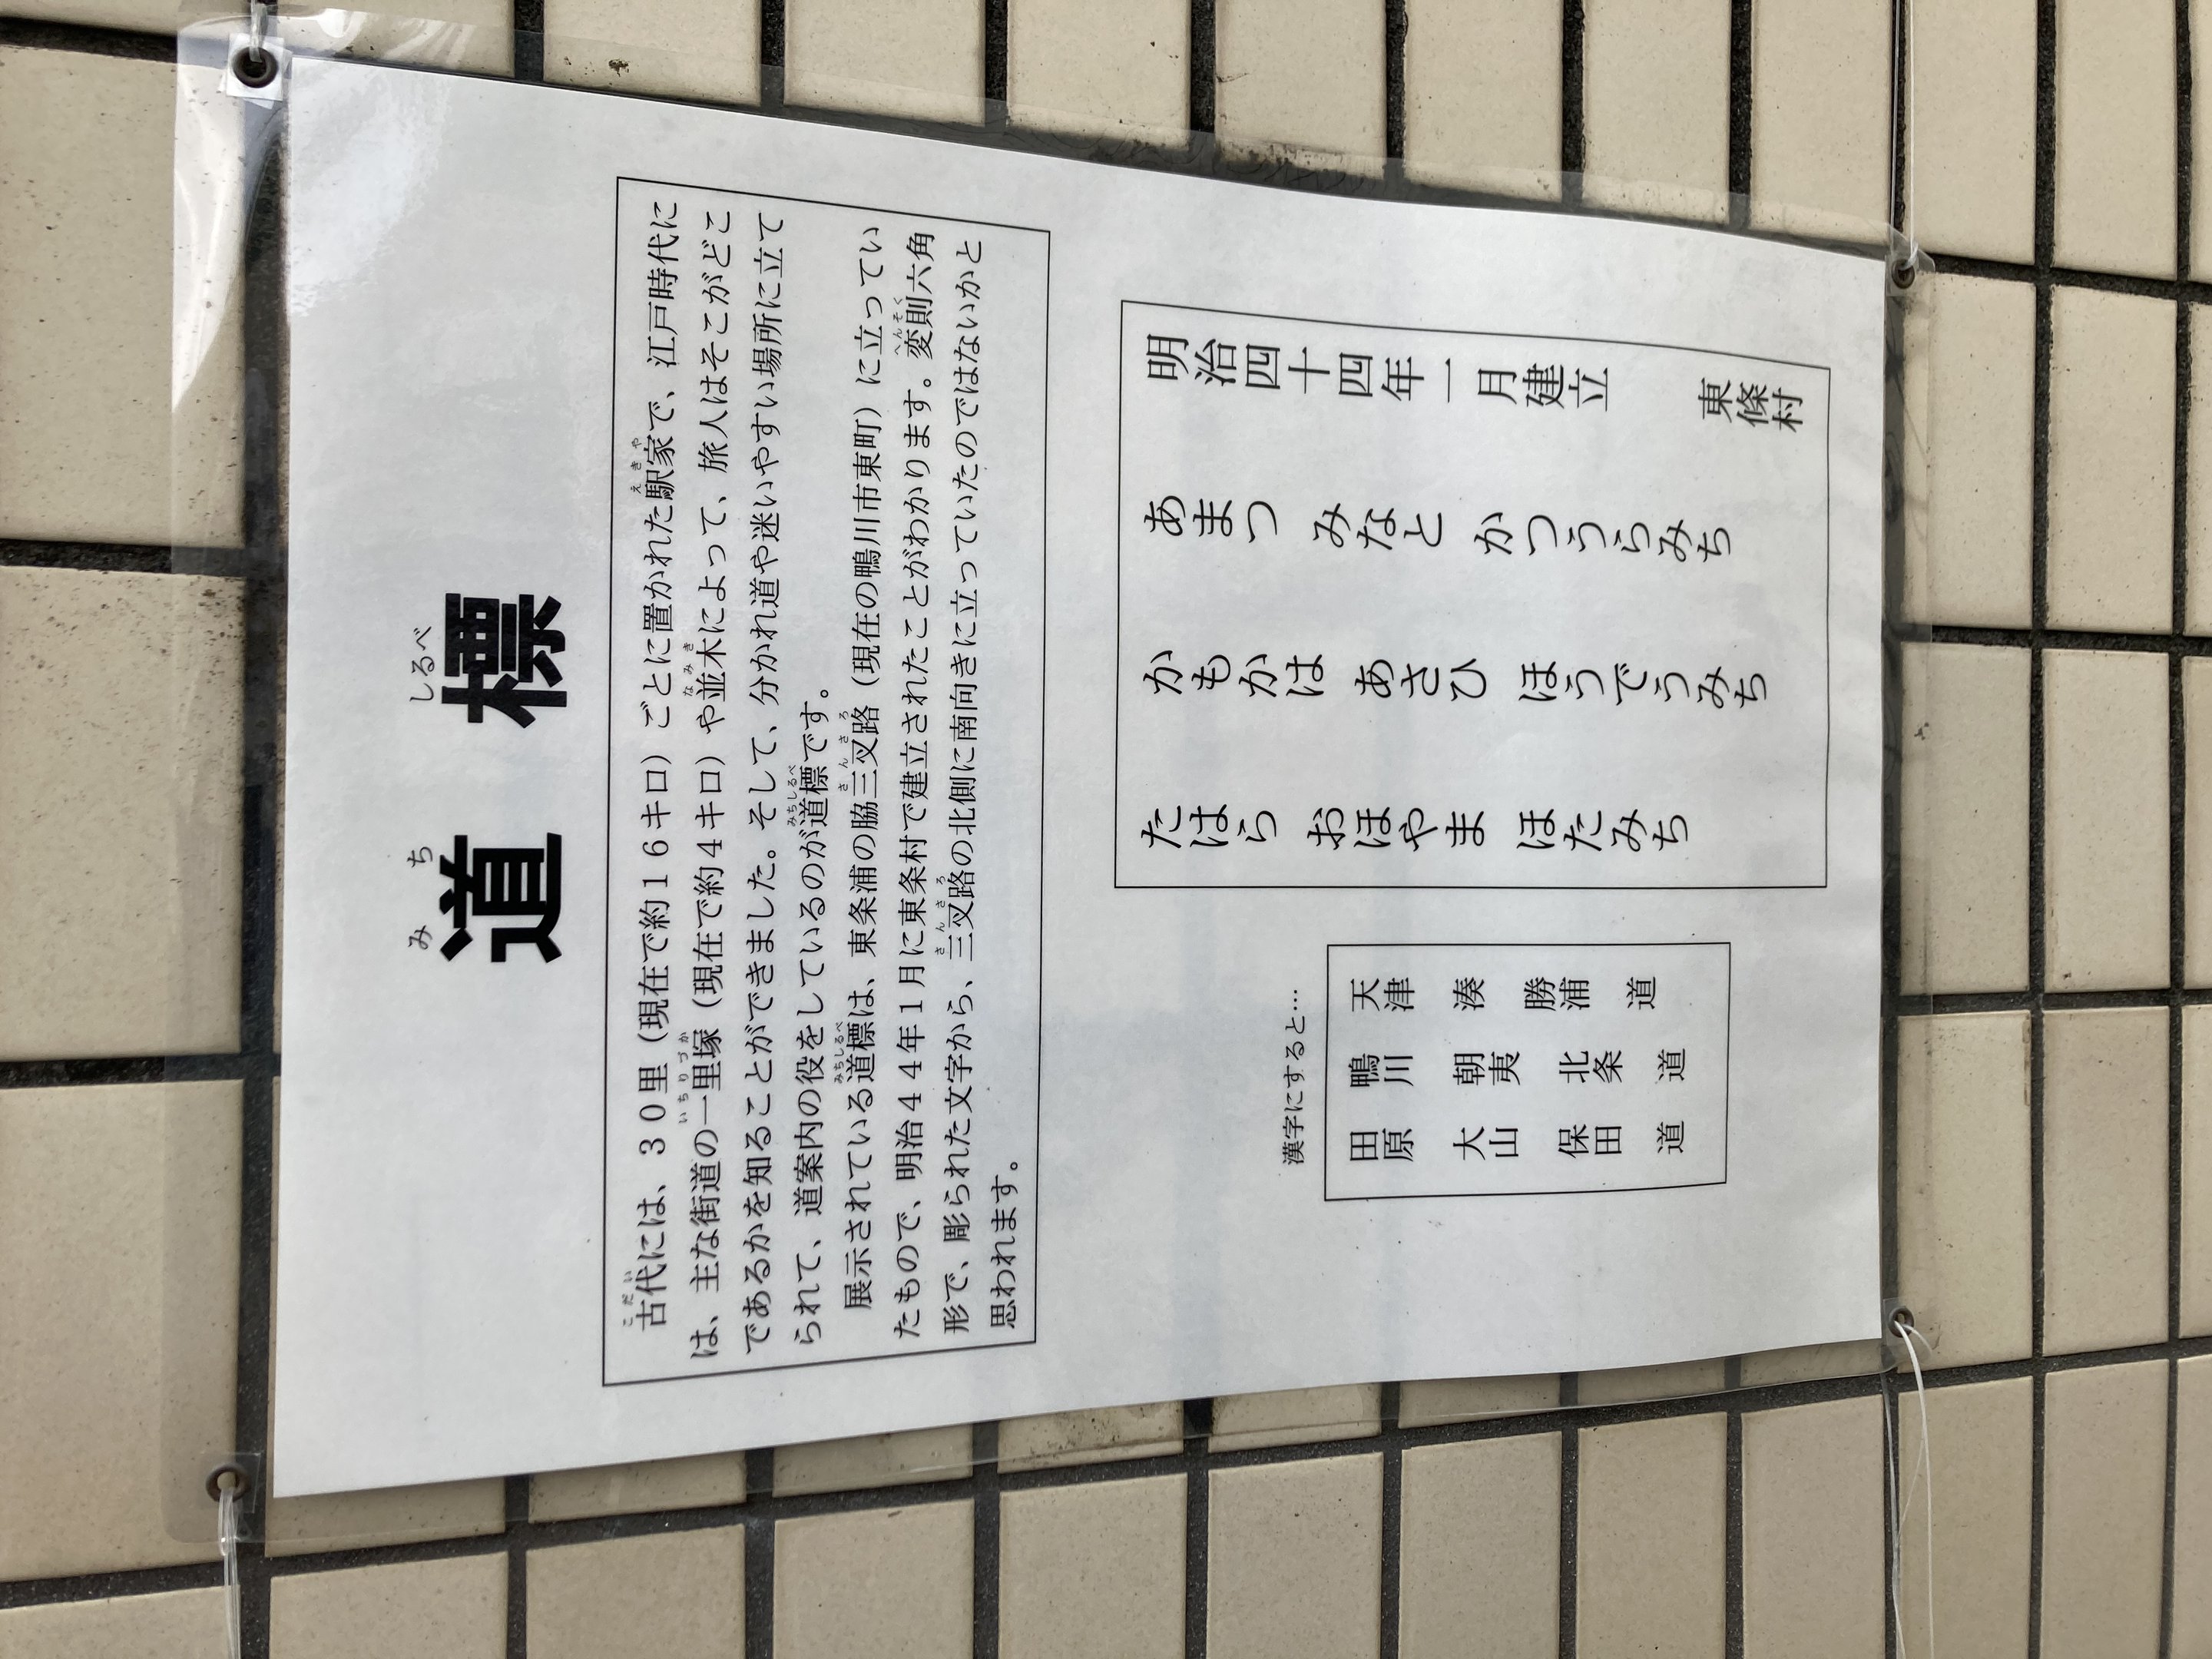 道標
みちしるべ
古代には、30里（現在で約16キロ）ごとに置かれた駅家で、江戸時代に
は、主な街道の一里塚（現在で約4キロ）や並木によって、旅人はそこがどこ
であるかを知ることができました。そして、分かれ道や迷いやすい場所に立て
られて、道案内の役をしているのが道標です。
展示されている道標は、東条浦の脇三叉路（現在の鴨川市東町）に立ってい
たもので、明治44年1月に東条村で建立されたことがわかります。変則六角
形で、彫られた文字から、三叉路の北側に南向きに立っていたのではないかと
思われます。
明治四十四年一月建立 東條村
あまつ みなと かつうらみち
かもかは あさひ ほうでうみち
たはら おほやま ほたみち
漢字にすると…
天津 湊 勝浦 道
鴨川 朝夷 北条 道
田原 大山 保田 道